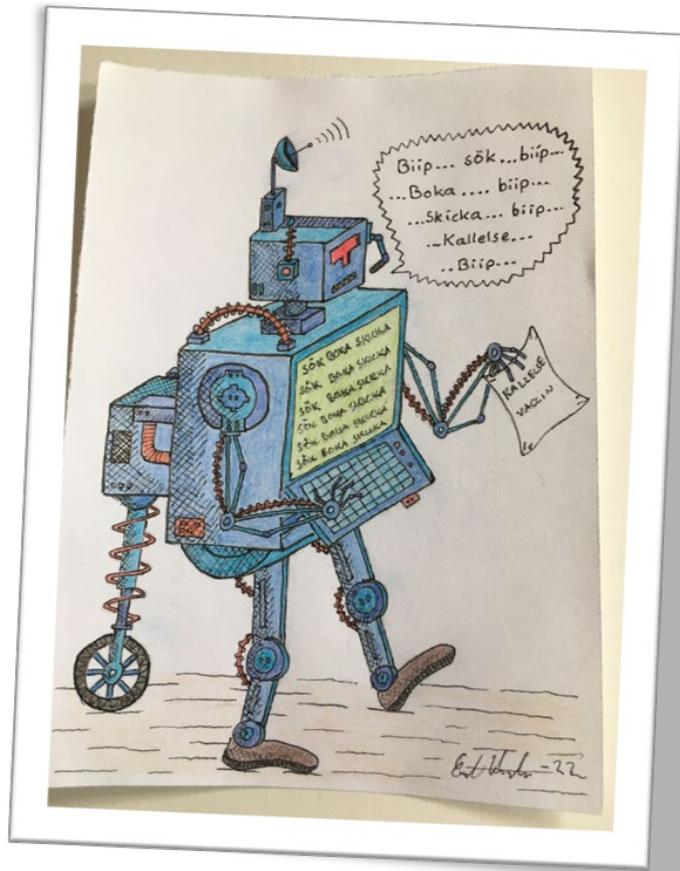 Biip... sök...biip...
...Boka.... biip...
...Skicka... biip...
...Kallelse...
..Biip...
SÖK BOKA SKICKA
SÖK BOKA SKICKA
SÖK BOKA SKICKA
SÖK BOKA SKICKA
SÖK BOKA SKICKA
SÖK BOKA SKICKA
KALLELSE
-22